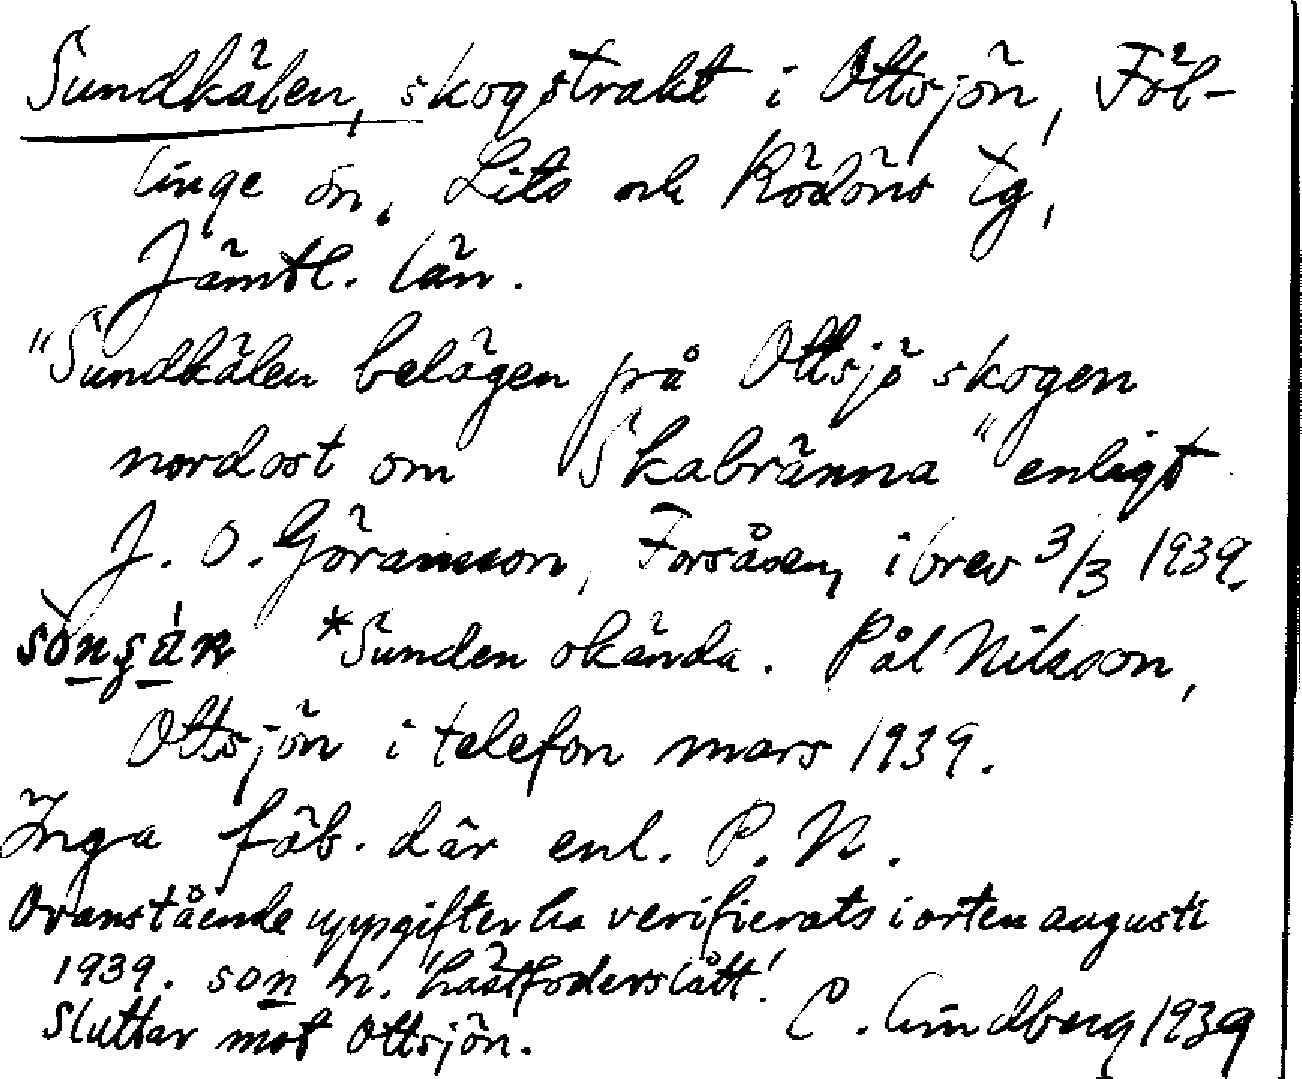 Sundkälen, skogstrakt i Ottsjön, Föl-
linge sn, Lits och Rödöns tg,
Jämtl. län.
"Sundkälen belägen på Ottsjö skogen
nordost om Skabränna" enligt
J. O. Göransson, Forsåsen, i brev 3/3 1939.
*Sunden okända. Pål Nilsson,
Ottsjön i telefon mars 1939.
Inga fäb. där enl. P. N.
Ovanstående uppgifter ha verifierats i orten augusti
1939. son n. 'hästfoderslått'.
Sluttar mot Ottsjön. C. Lindberg 1939